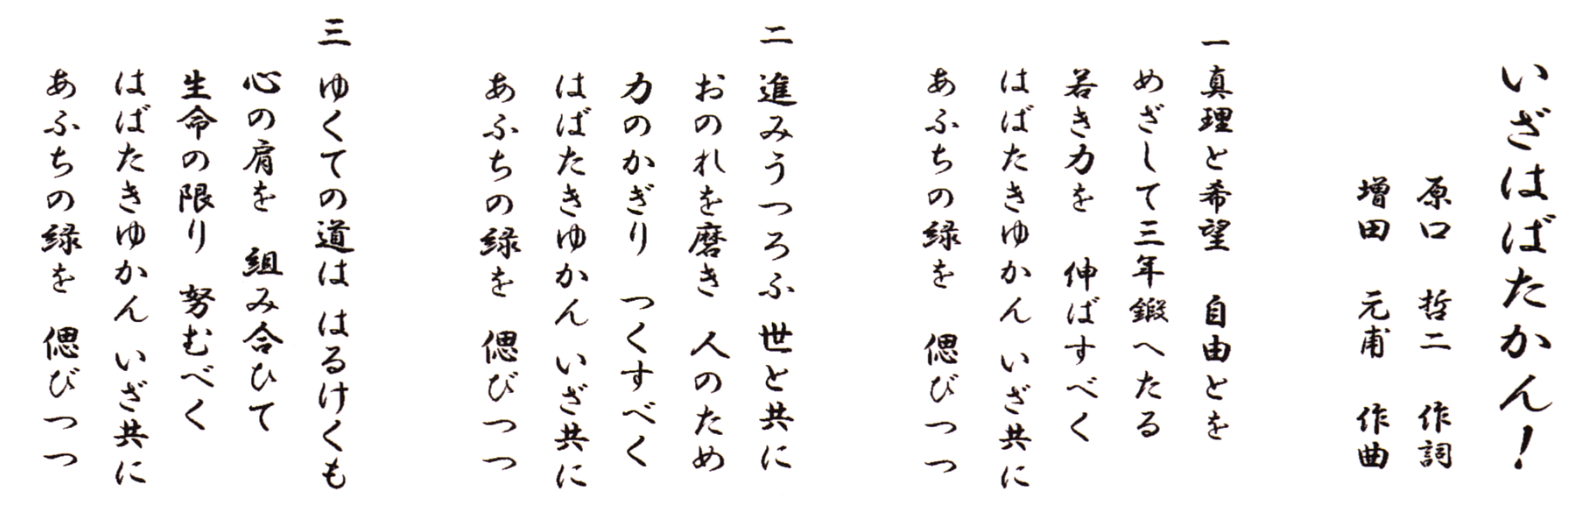 いざはばたかん！
原口　哲二　作詞
増田　元甫　作曲
一 真理と希望　自由とを
めざして三年鍛へたる
若き力を　伸ばすべく
はばたきゆかん いざ共に
あふちの緑を　偲びつつ
二 進みうつろふ 世と共に
おのれを磨き 人のため
力のかぎり　つくすべく
はばたきゆかん いざ共に
あふちの緑を　偲びつつ
三 ゆくての道は はるけくも
心の肩を　組み合ひて
生命の限り 努むべく
はばたきゆかん いざ共に
あふちの緑を　偲びつつ